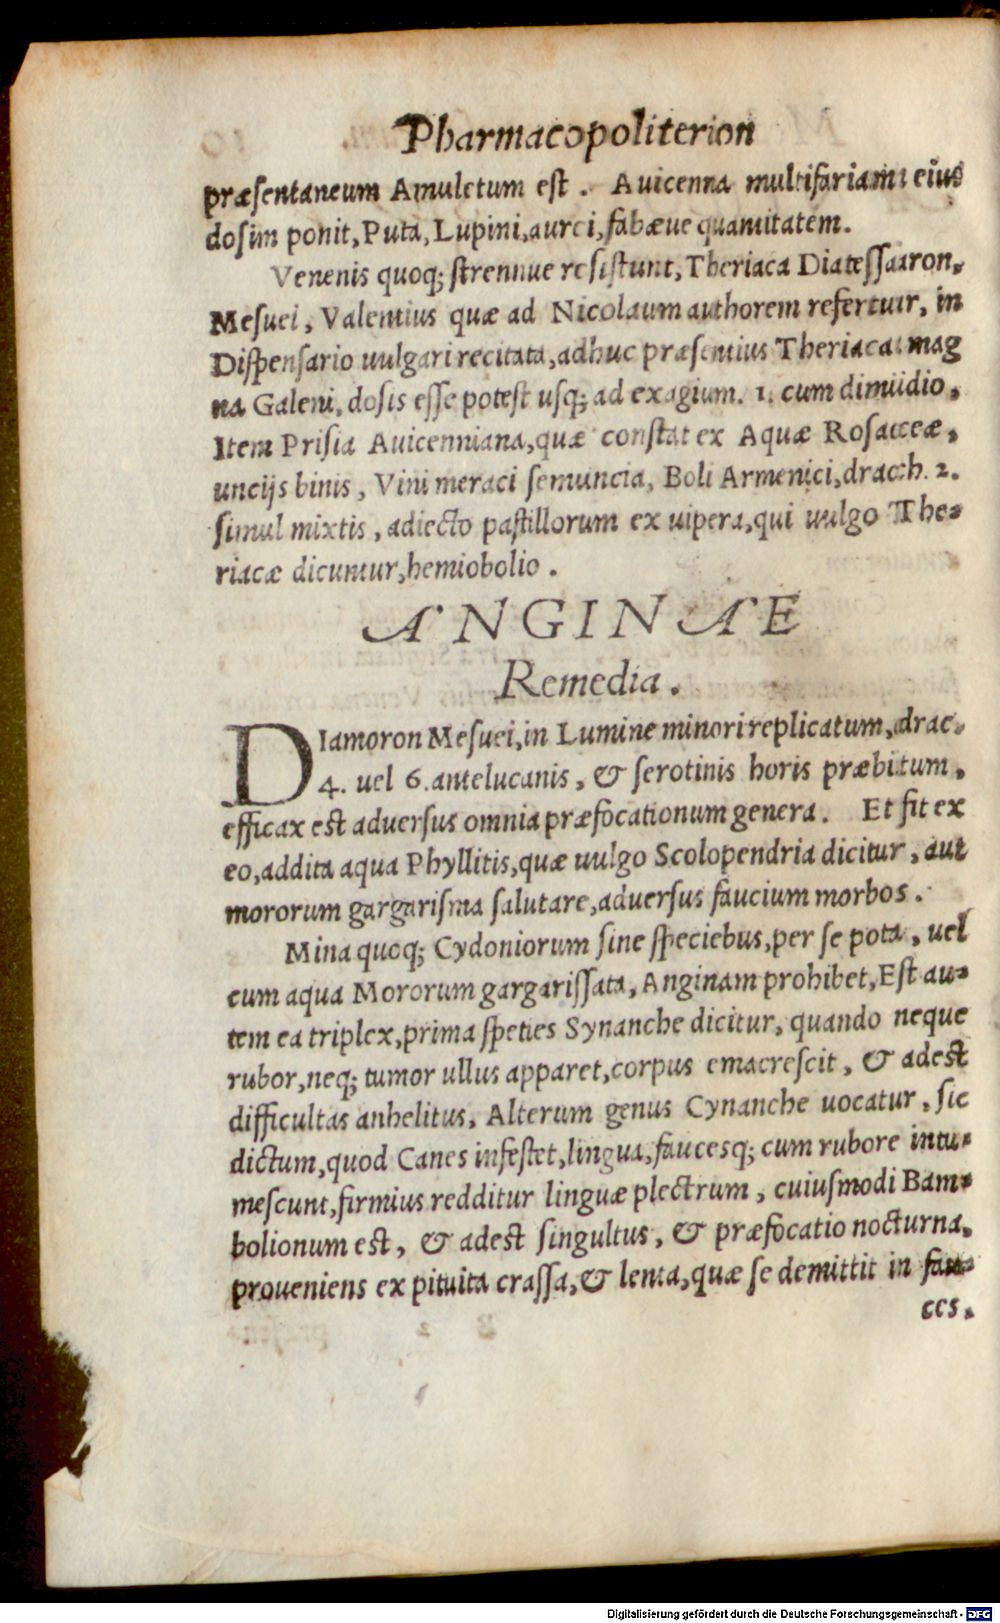 Pharmacopoliterion
præsentaneum Amuletum est. Auicenna multifariam eius
dosim ponit, Puta, Lupini, aurei, fabæue quantitatem.
Venenis quoq; strennue resistunt, Theriaca Diatessaaron,
Mesuei, Valentius quæ ad Nicolaum authorem refertur, in
Dispensario uulgari recitata, adhuc præsentius Theriaca mag
na Galeni, dosis esse potest usq; ad exagium. 1. cum dimidio,
Item Prisia Auicenniana, quæ constat ex Aquæ Rosaceæ,
uncijs binis, Vini meraci semuncia, Boli Armenici, drach. 2.
simul mixtis, adiecto pastillorum ex uipera, qui uulgo The-
riacæ dicuntur, hemiobolio.
ANGINAE
Remedia.
DIamoron Mesuei, in Lumine minori replicatum, drac.
4. uel 6. antelucanis, & serotinis horis præbitum,
efficax est aduersus omnia præfocationum genera. Et fit ex
eo, addita aqua Phyllitis, quæ uulgo Scolopendria dicitur, aut
mororum gargarisma salutare, aduersus faucium morbos.
Mina quoq; Cydoniorum sine speciebus, per se pota, uel
cum aqua Mororum gargarissata, Anginam prohibet, Est au-
tem ea triplex, prima speties Synanche dicitur, quando neque
rubor, neq; tumor ullus apparet, corpus emacrescit, & adest
difficultas anhelitus, Alterum genus Cynanche uocatur, sic
dictum, quod Canes infestet, lingua, faucesq; cum rubore intu-
mescunt, firmius redditur linguæ plectrum, cuiusmodi Bam-
bolionum est, & adest singultus, & præfocatio nocturna,
proueniens ex pituita crassa, & lenta, quæ se demittit in fau-
ces.
Digitalisierung gefördert durch die Deutsche Forschungsgemeinschaft - DFG